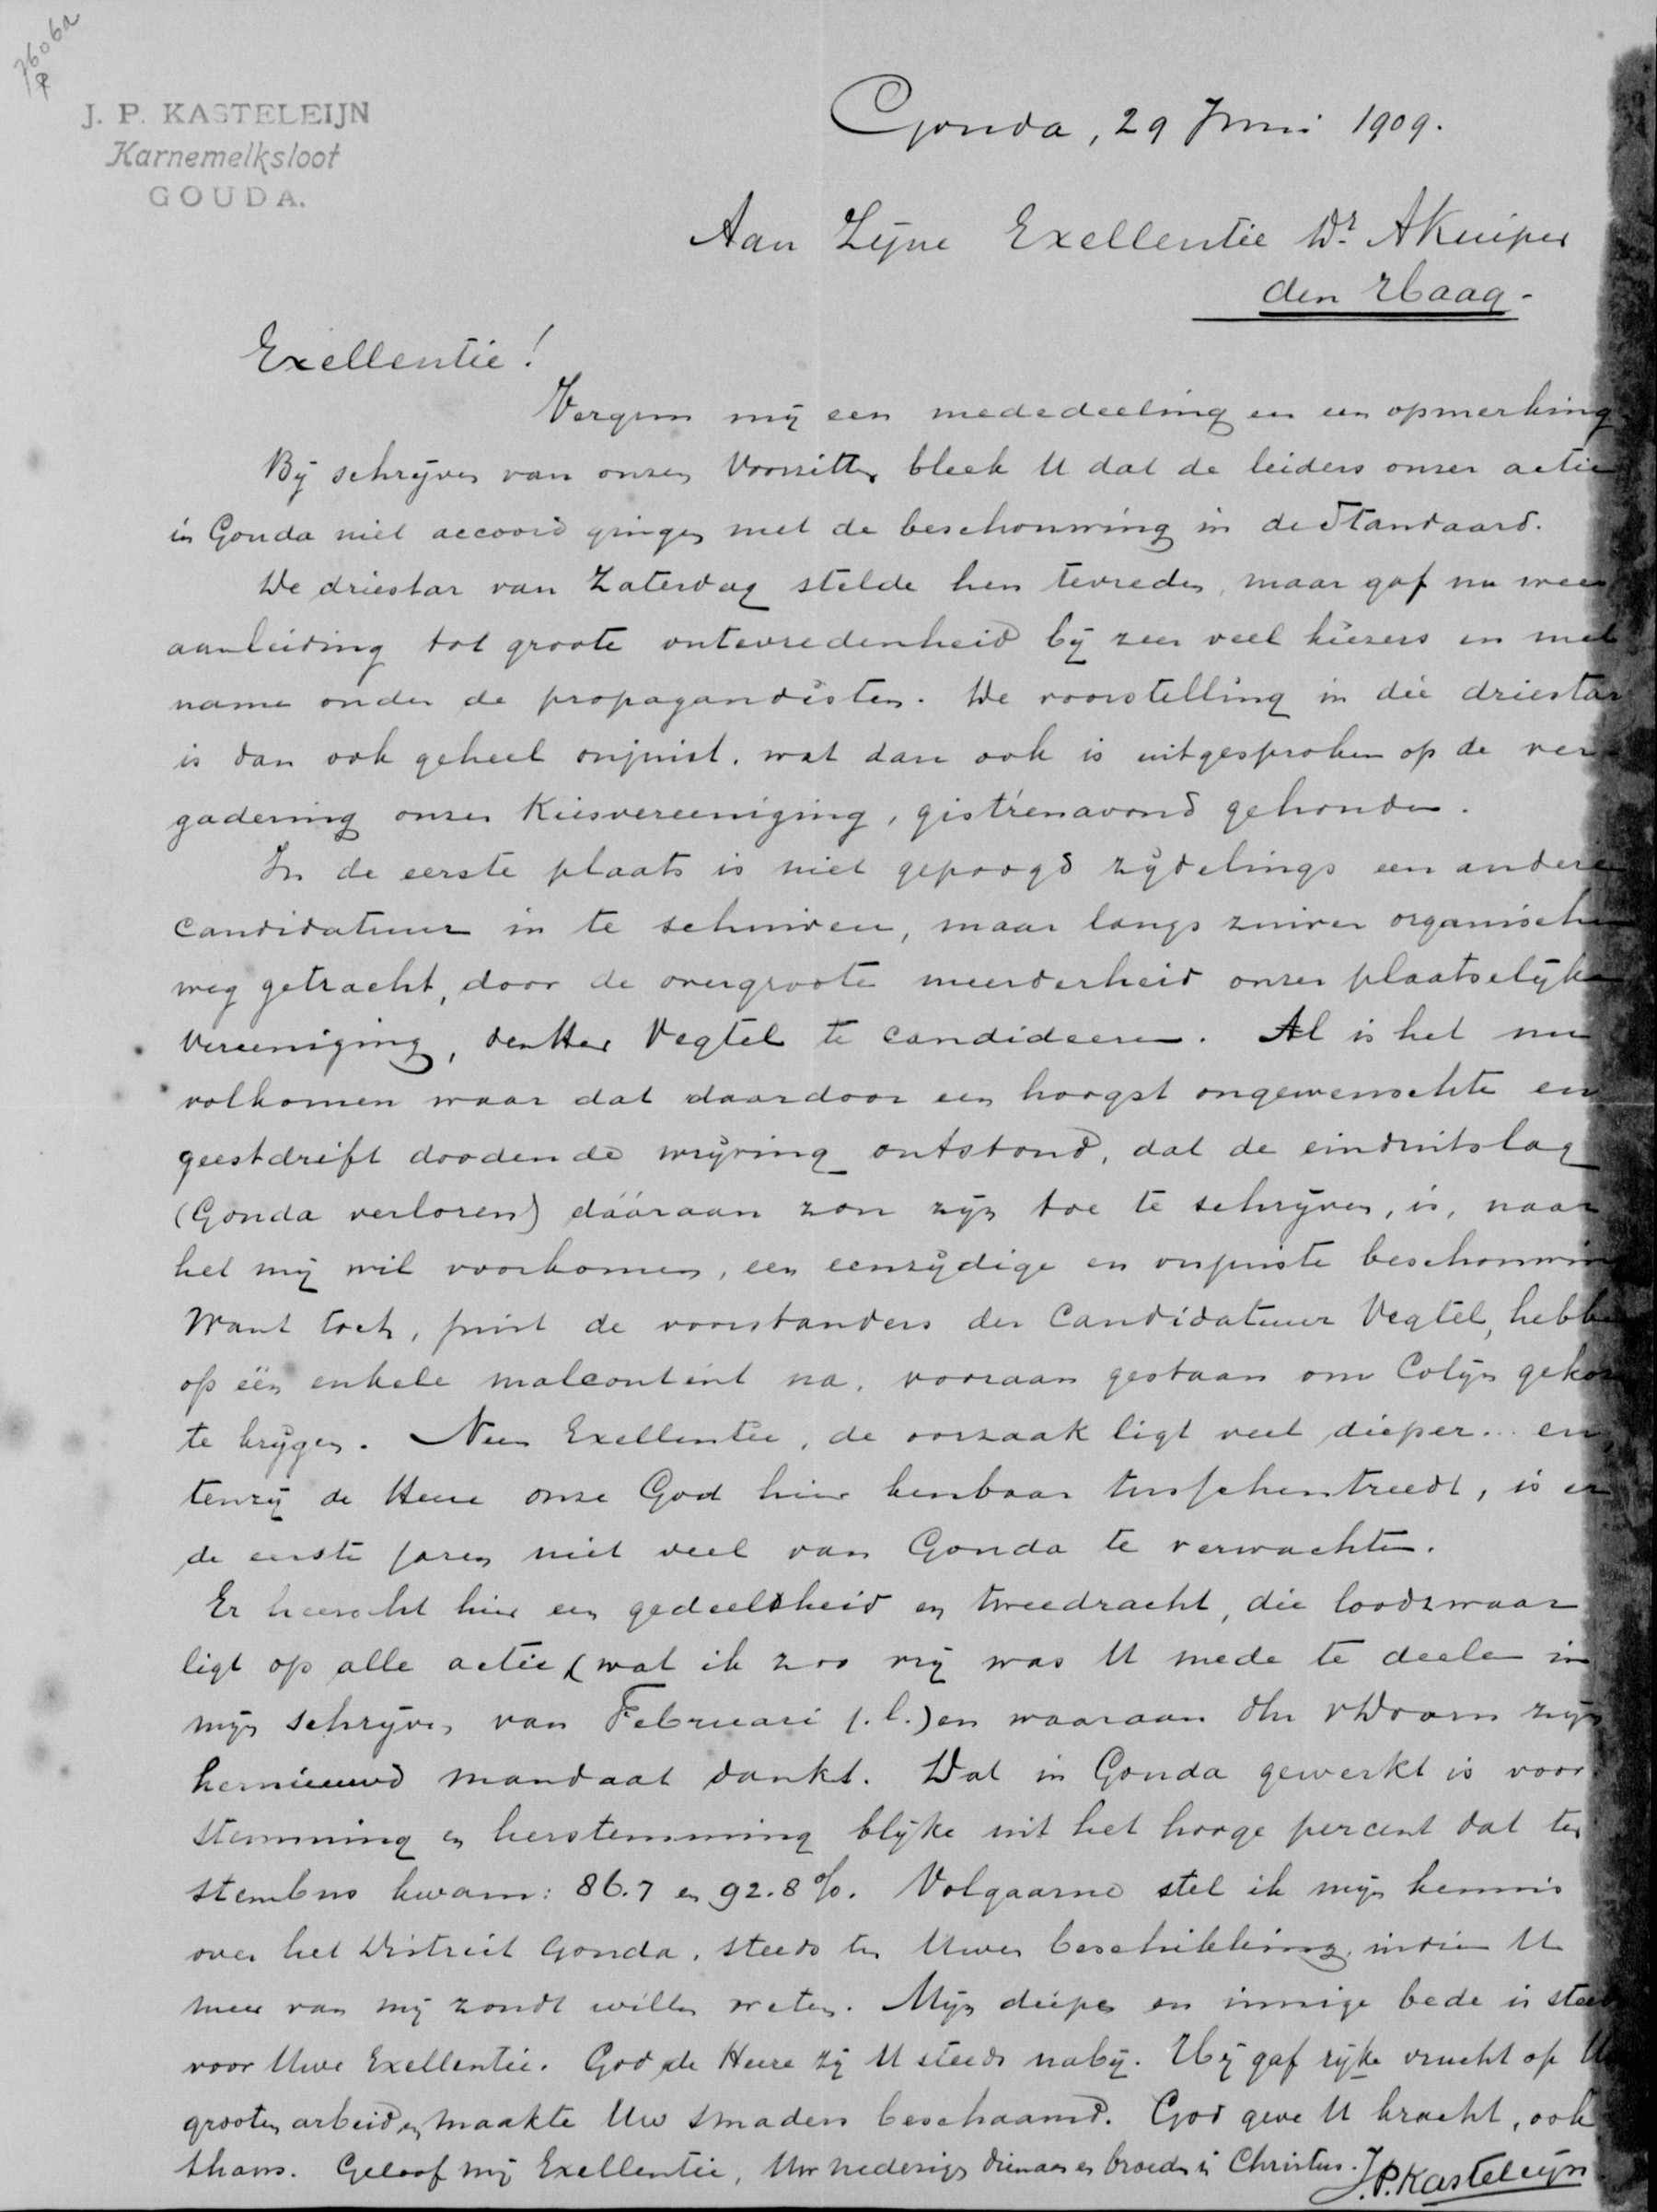 7606a
J. P. KASTELEIJN
Karnemelksloot
GOUDA.
Gouda, 29 Juni 1909.
Aan Zijne Exellentie Dr. AKuiper
den Haag-
Exellentie!
Vergun mij een mededeeling en een opmerking
Bij schrijven van onzen Voorzitter bleek U dat de leiders onzer actie
in Gouda niet accoord gingen met de beschouwing in de Standaard.
De driestar van Zaterdag stelde hen tevreden, maar gaf nu weer
aanleiding tot groote ontevredenheid bij zeer veel kiezers en met
name onder de propagandisten. De voorstelling in die driestar
is dan ook geheel onjuist, wat dan ook is uitgesproken op de ver-
gadering onzer Kiesvereeniging, gist'renavond gehouden.
In de eerste plaats is niet gepoogd zijdelings een andere
candidatuur in te schuiven, maar langs zuiver organischen
weg getracht, door de overgroote meerderheid onzer plaatselijke
Vereeniging, den Heer Vegtel te candideeren. Al is het nu
volkomen waar dat daardoor een hoogst ongewenschte en
geestdrift doodende wrijving ontstond, dat de einduitslag
(Gouda verloren) dááraan zou zijn toe te schrijven, is, naar
het mij wil voorkomen, een eenzijdige en onjuiste beschouwing
Want toch, juist de voorstanders der Candidatuur Vegtel, hebben
op één enkele malcontent na, vooraan gestaan om Colijn gekozen
te krijgen. Neen Exellentie, de oorzaak ligt veel dieper... en,
tenzij de Heere onze God hier kenbaar tusschentreedt, is er
de eerste jaren niet veel van Gouda te verwachten.
Er heerscht hier een gedeeldheid en tweedracht, die loodzwaar
ligt op alle actie (wat ik zoo vrij was U mede te deelen in
mijn schrijven van Februari j.l.) en waaraan dhr vDoorn zijn
hernieuwd mandaat dankt. Dat in Gouda gewerkt is voor
stemming en herstemming blijke uit het hooge percent dat ter
stembus kwam: 86.7 en 92.8%. Volgaarne stel ik mijn kennis
over het District Gouda, steeds ter Uwer beschikking, indien U
meer van mij zoudt willen weten. Mijn diepe en innige bede is steeds
voor Uwe Exellentie. God de Heere zij U steeds nabij. Hij gaf rijke vrucht op Uw
grooten arbeid en maakte Uw smaders beschaamd. God geve U kracht, ook
thans. Geloof mij Exellentie, Uw nederige dienaar en broeder in Christus. J.P. Kasteleijn